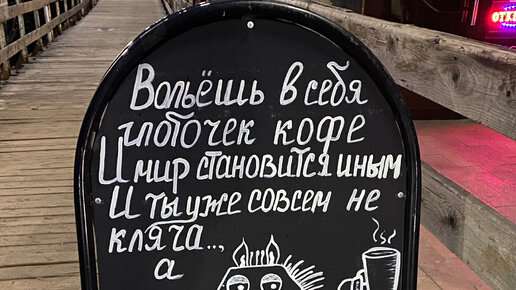 Вольёшь в себя
глоточек кофе
И мир становится иным
И ты уже совсем не
кляча..,
а